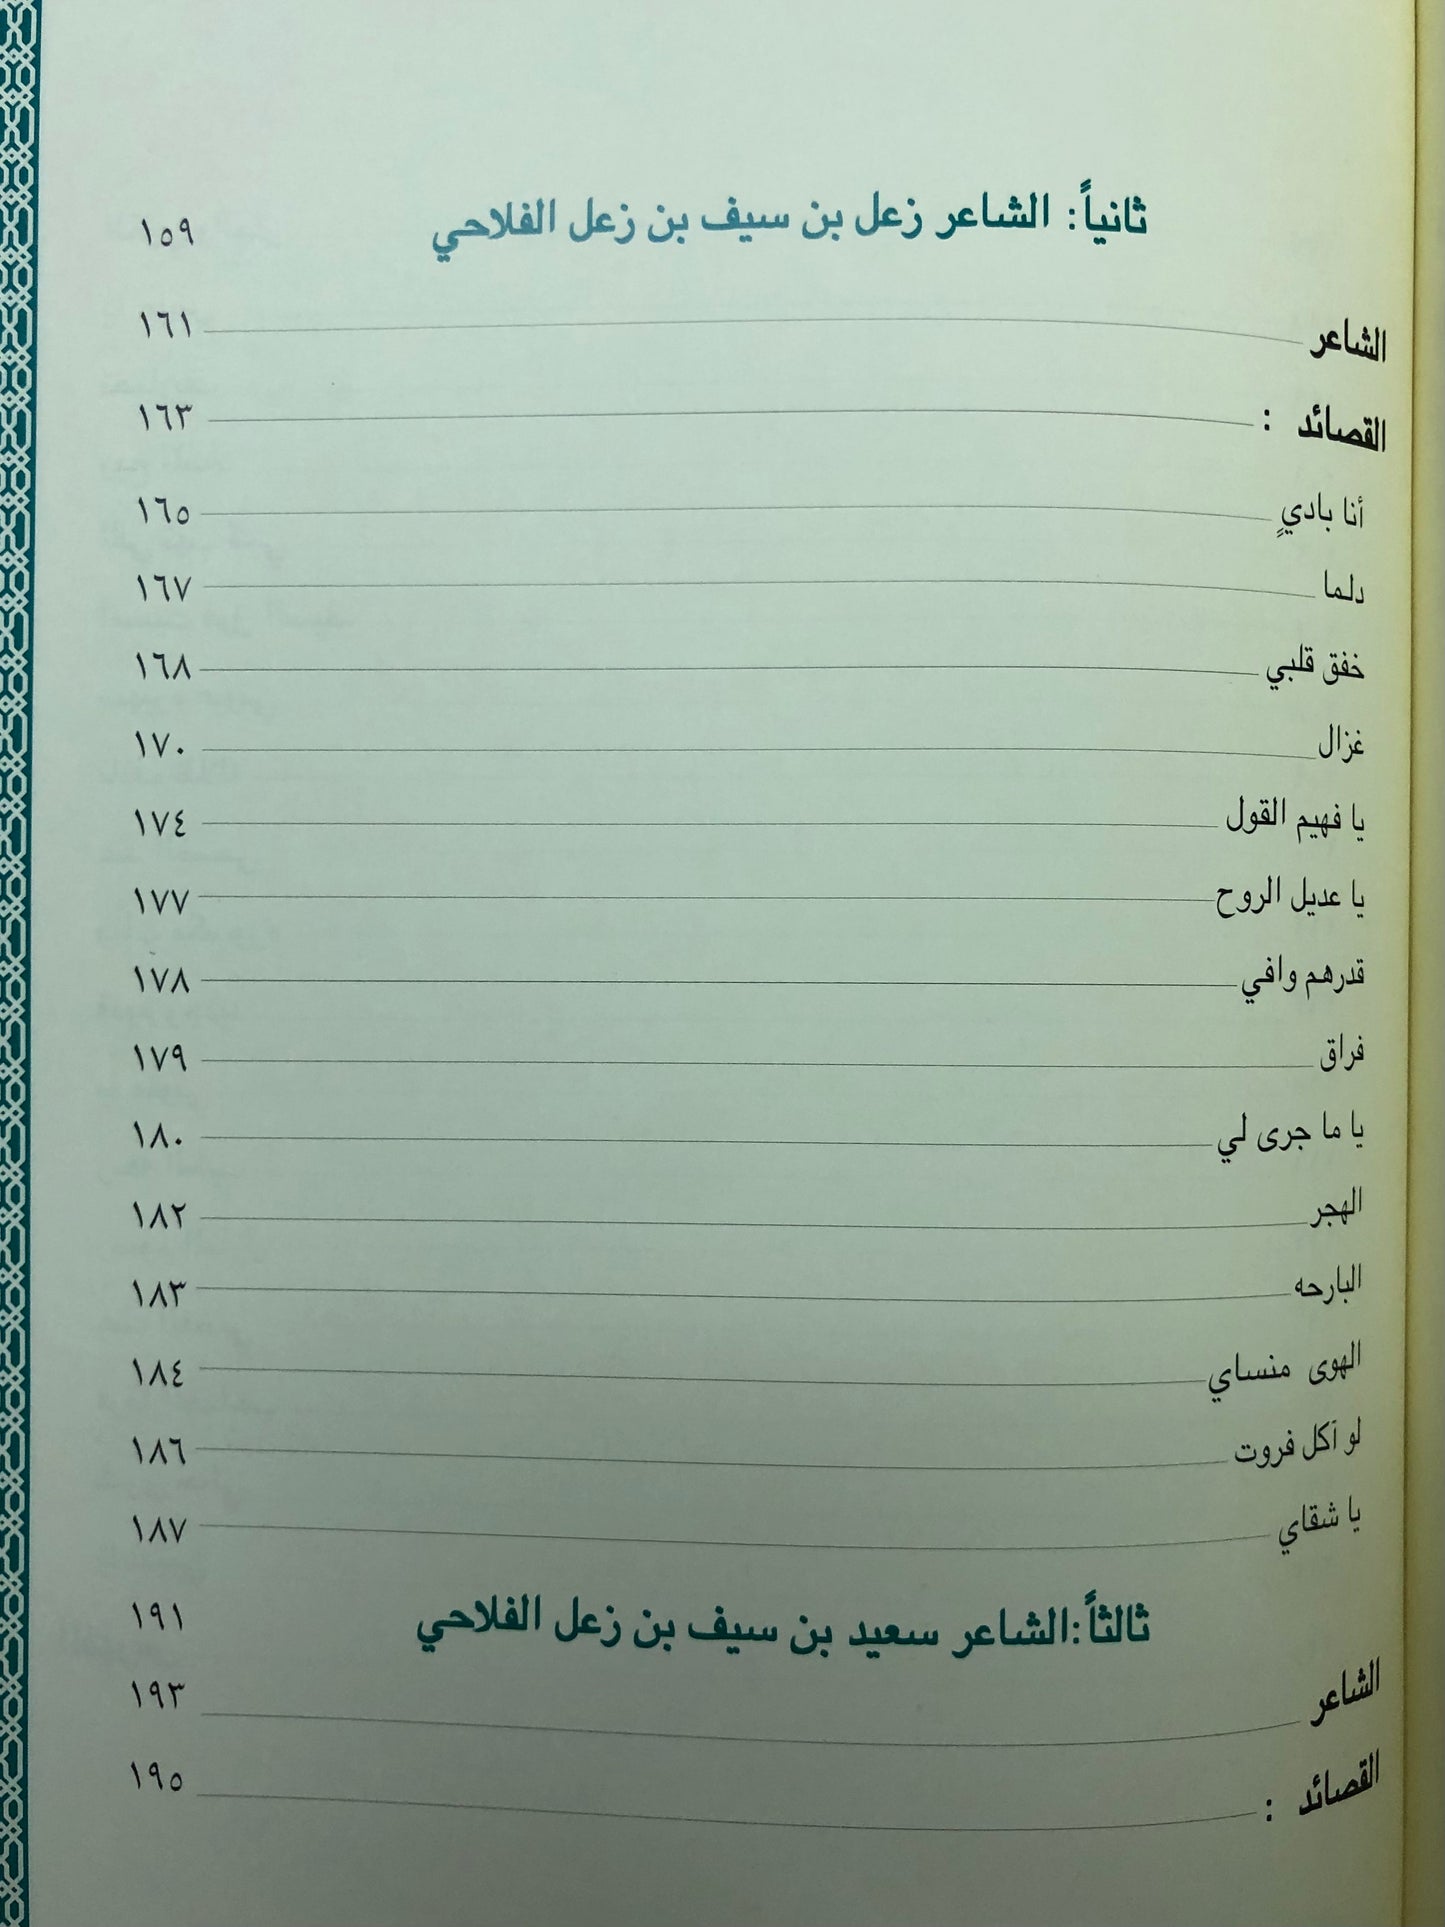 ثانياً: الشاعر زعل بن سيف بن زعل الفلاحي ١٥٩
الشاعر ١٦١
القصائد : ١٦٣
أنا باديٍ ١٦٥
دلما ١٦٧
خفق قلبي ١٦٨
غزال ١٧٠
يا فهيم القول ١٧٤
يا عديل الروح ١٧٧
قدرهم وافي ١٧٨
فراق ١٧٩
يا ما جرى لي ١٨٠
الهجر ١٨٢
البارحه ١٨٣
الهوى منساي ١٨٤
لو آكل فروت ١٨٦
يا شقاي ١٨٧
ثالثاً:الشاعر سعيد بن سيف بن زعل الفلاحي ١٩١
الشاعر ١٩٣
القصائد : ١٩٥